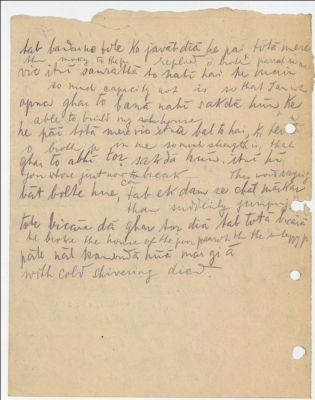 tab bandar ne tote ko javāb diā he pai totā mere
then monkey to the p. replied o broth. parrot in me
vic itnī samratthā to nahī hai ke main
so much capacity not is so that I am not
apnā ghar to banā nahī sakdā hūn ke
able to build my house
he pāī totā mere vic itnā bal to hai, k terā
o broth. p. in me so much strength is, that
ghar to abhī toṛ sakdā hūn. itnī hī
you house just now to break This word saying
bāt bolte hue, tab ek dam se chāl mārkar
than suddenly jumping
tote bicāre dā ghar toṛ diā tab totā bicārā
he broke the house of the poor parrot th the
pāle nāl kambdā hūā mar giā
with cold shivering died.